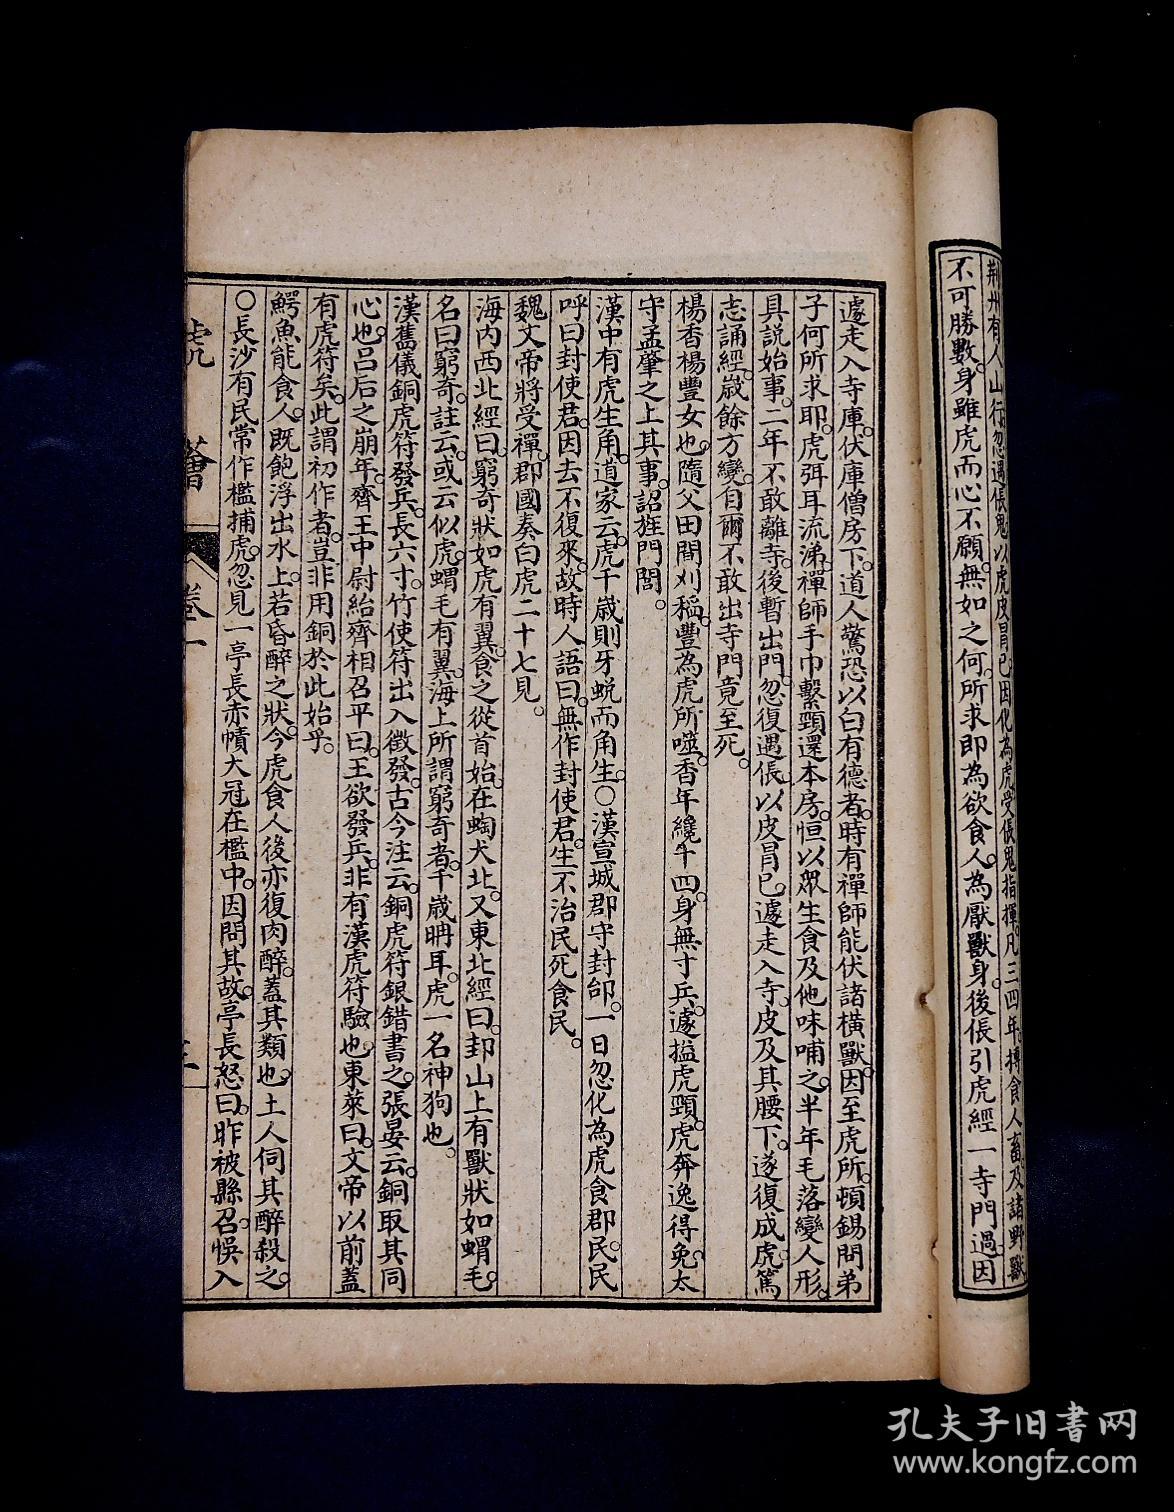 荆州有人山行忽遇倀鬼以虎皮冒己因化為虎受倀鬼指揮凡三四年搏食人畜及諸野獸
不可勝數身雖虎而心不願無如之何所求即為欲食人為厭獸身後倀引虎經一寺門過因
遽走入寺庫伏庫僧房下道人驚恐以白有德者時有禪師能伏諸橫獸因至虎所頓錫問弟
子何所求耶虎弭耳流涕禪師手巾繫頸還本房恒以眾生食及他味哺之半年毛落變人形
具說始事二年不敢離寺後暫出門忽復遇倀以皮冒己遽走入寺皮及其腰下遂復成虎篤
志誦經歲餘方變自爾不敢出寺門竟至死
楊香楊豐女也隨父田間刈稻豐為虎所噬香年纔十四身無寸兵遽搤虎頸虎奔逸得免太
守孟肇之上其事詔旌門閭
漢中有虎生角道家云虎千歲則牙蛻而角生○漢宣城郡守封邵一日忽化為虎食郡民民
呼曰封使君因去不復來故時人語曰無作封使君生不治民死食民
魏文帝將受禪郡國奏白虎二十七見
海內西北經曰窮奇狀如虎有翼食之從首始在蜪犬北又東北經曰邽山上有獸狀如蝟毛
名曰窮奇註云或云似虎蝟毛有翼海上所謂窮奇者千歲聃耳虎一名神狗也
漢舊儀銅虎符發兵長六寸竹使符出入徵發古今注云銅虎符銀錯書之張晏云銅取其同
心也呂后之崩年齊王中尉紿齊相召平曰王欲發兵非有漢虎符驗也東萊曰文帝以前蓋
有虎符矣此謂初作者豈非用銅於此始乎
鱷魚能食人既飽浮出水上若昏醉之狀今虎食人後亦復肉醉蓋其類也土人伺其醉殺之
○長沙有民常作檻捕虎忽見一亭長赤幘大冠在檻中因問其故亭長怒曰昨被縣召悞入
卷一
孔夫子旧书网
www.kongfz.com